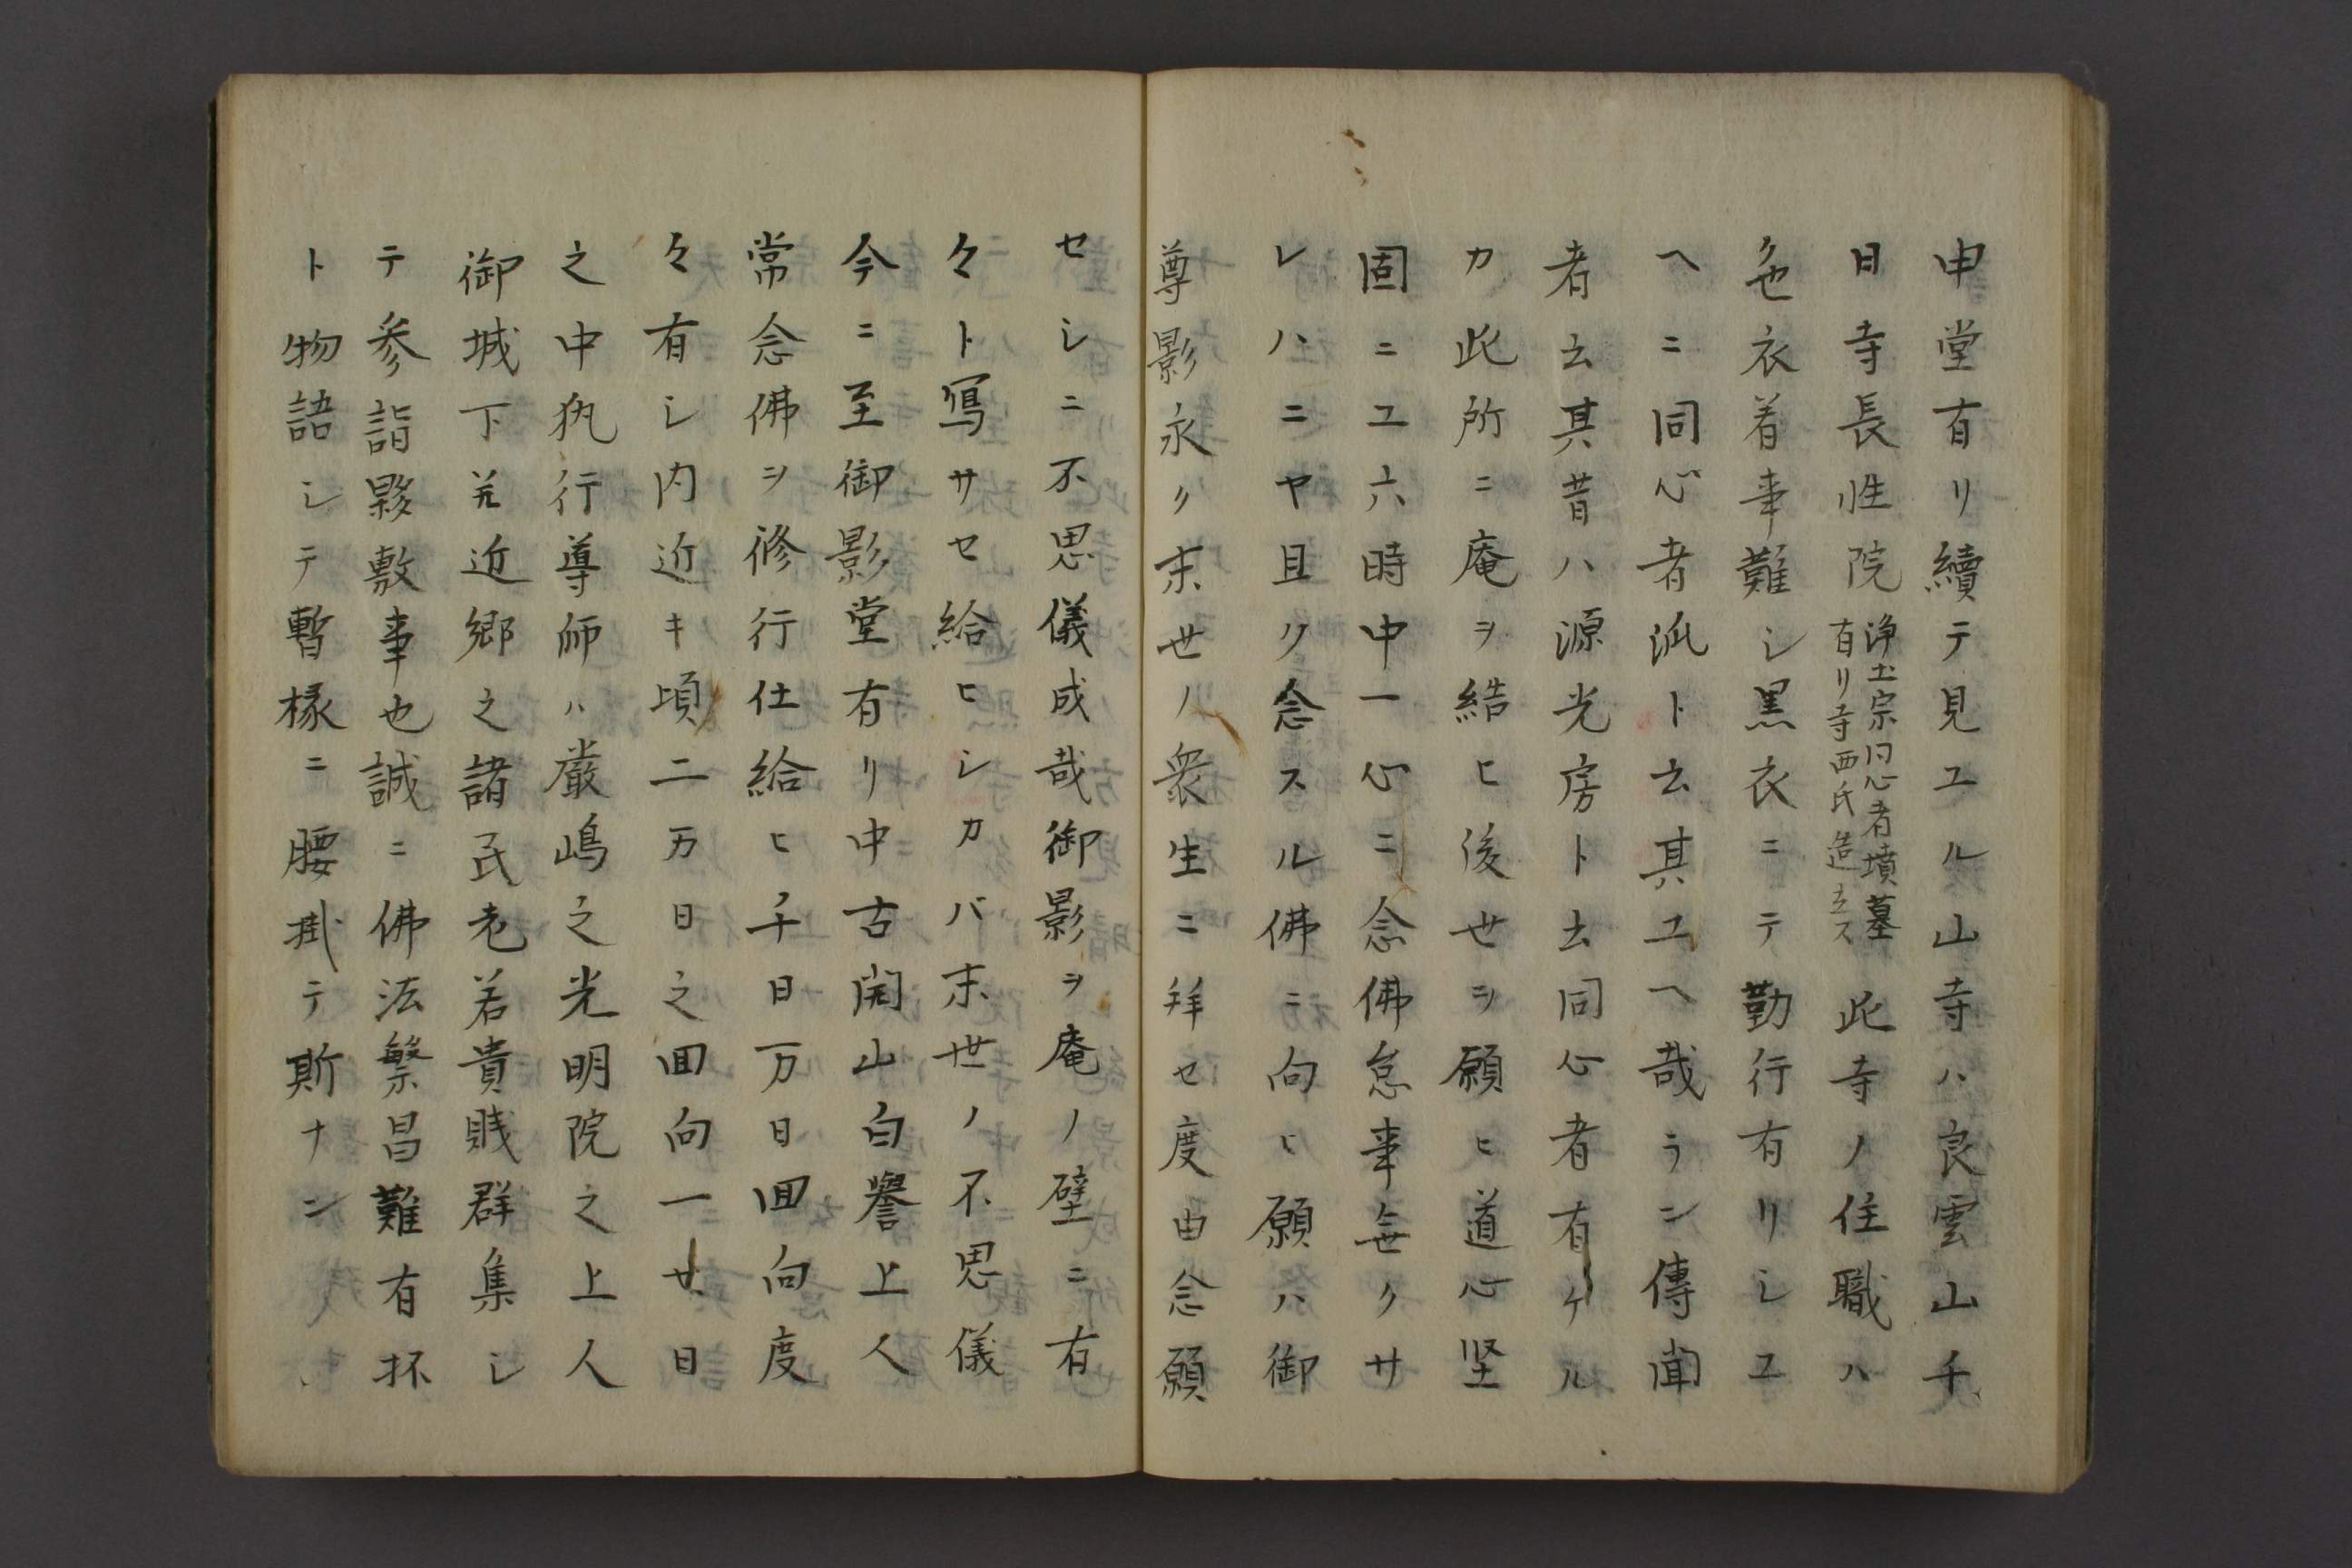 申堂有リ續テ見ユル山寺ハ良雲山千
日寺長性院
浄土宗同心者墳墓
有リ寺西氏造立ス
此寺ノ住職ハ
色衣着事難シ黒衣ニテ勤行有リシユ
ヘニ同心者派ト云其ユヘ哉ラン傳聞
者云其昔ハ源光房ト云同心者有ケル
カ此所ニ庵ヲ結ヒ後世ヲ願ヒ道心堅
固ニユ六時中一心ニ念佛怠事無クサ
レハニヤ且ク念スル佛ニ向ヒ願ハ御
尊影永ク末世ノ衆生ニ拜セ度由念願
セシニ不思儀成哉御影ヲ庵ノ壁ニ有
々ト冩サセ給ヒシカバ末世ノ不思儀
今ニ至御影堂有リ中古開山白譽上人
常念佛ヲ修行仕給ヒ千日万日回向度
々有シ内近キ頃二万日之回向一廿日
之中執行導師ハ嚴嶋之光明院之上人
御城下并近郷之諸民老若貴賎群集シ
テ参詣夥敷事也誠ニ佛法繁昌難有抔
ト物語シテ暫椽ニ腰掛テ斯ナン